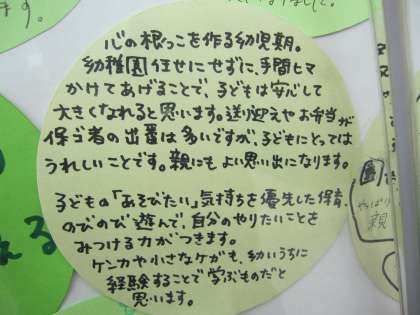 心の根っこを作る幼児期。
幼稚園任せにせずに、手間ヒマ
かけてあげることで、子どもは安心して
大きくなれると思います。送り迎えやお弁当が
保ゴ者の出番は多いですが、子どもにとっては
うれしいことです。親にもよい思い出になります。
子どもの「あそびたい」気持ちを優先した保育、
のびのび遊んで、自分のやりたいことを
みつける力がつきます。
ケンカや小さなケガも、幼いうちに
経験することで学ぶものだと
思います。
ます。
ました。
る
園
やっぱり
親